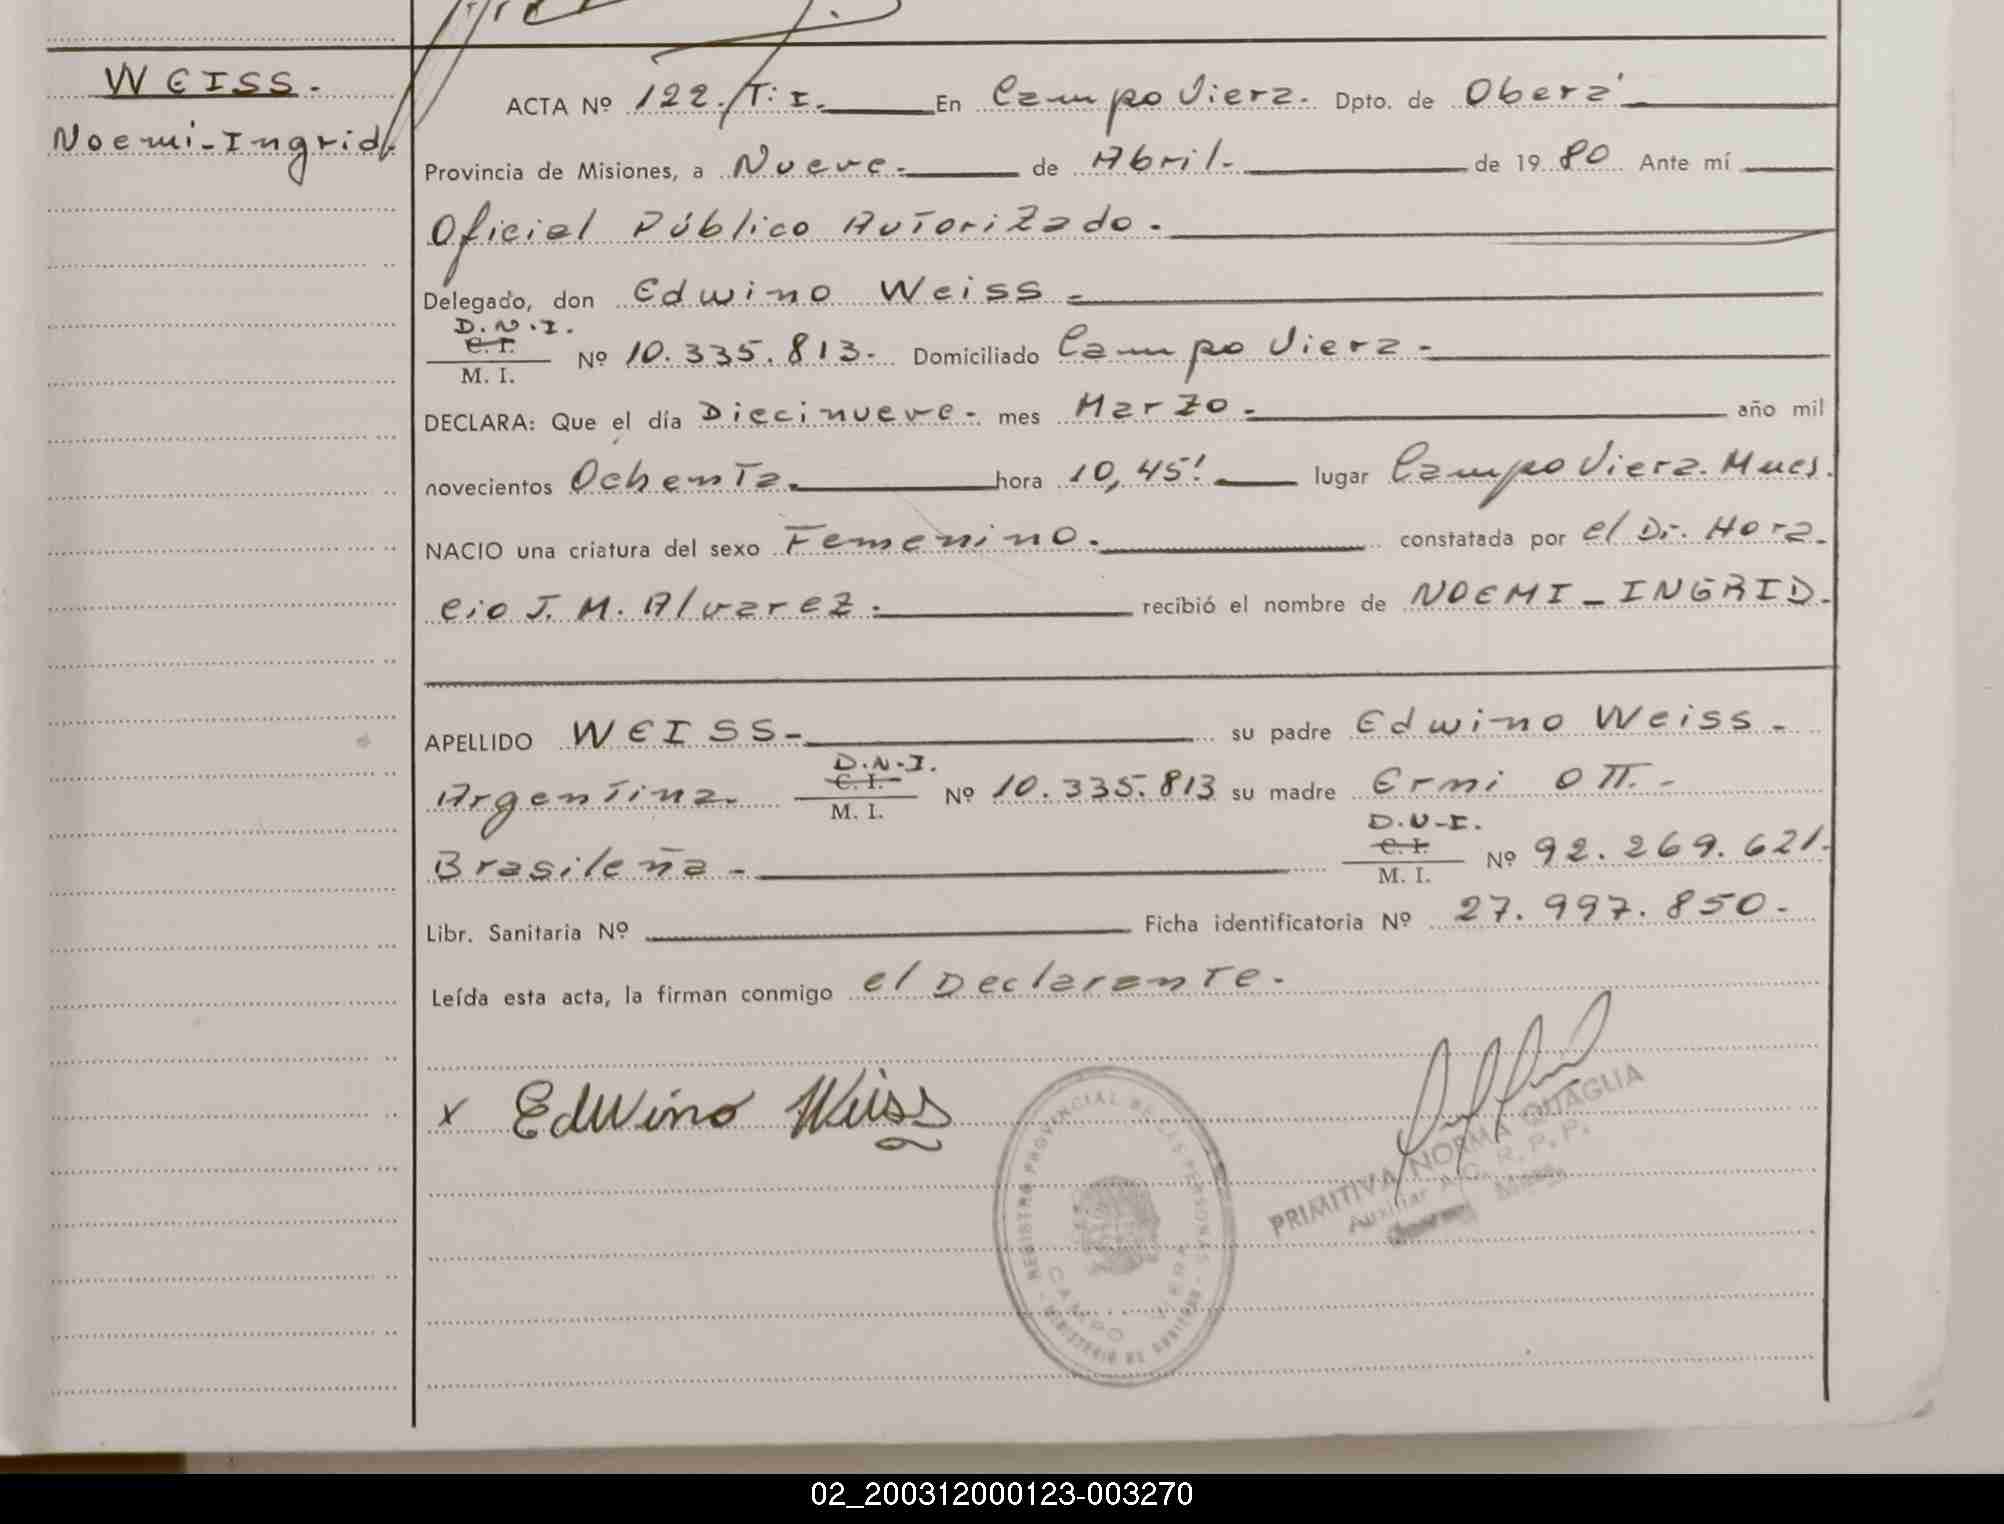 WEISS.
Noemi-Ingrid.
ACTA Nº 122. T: I. En Campo Viera. Dpto. de Oberá
Provincia de Misiones, a Nueve. de Abril. de 1980 Ante mí
Oficial Público Autorizado.
Delegado, don Edwino Weiss
D.N.I.
C. I.
M. I.
Nº 10.335.813. Domiciliado Campo Viera
DECLARA: Que el día Diecinueve. mes Marzo. año mil
novecientos Ochenta. hora 10,45! lugar Campo Viera. Mnes.
NACIO una criatura del sexo Femenino. constatada por el Dr. Hora
cio J. M. Alvarez. recibió el nombre de NOEMI_INGRID.
APELLIDO WEISS- su padre Edwino Weiss.
Argentina. D.N.I. C. I. M. I. Nº 10.335.813 su madre Ermi Ott.-
Brasileña - D.N.I. C. I. M. I. Nº 92.269.621.
Libr. Sanitaria Nº Ficha identificatoria Nº 27.997.850.
Leída esta acta, la firman conmigo el Declarante.
x Edwino Weiss
REGISTRO PROVINCIAL DE LAS PERSONAS
CAMPO VIERA
MINISTERIO DE GOBIERNO
PRIMITIVA NORMA QUAGLIA
Auxiliar A.C. R.P.P.
02_200312000123-003270